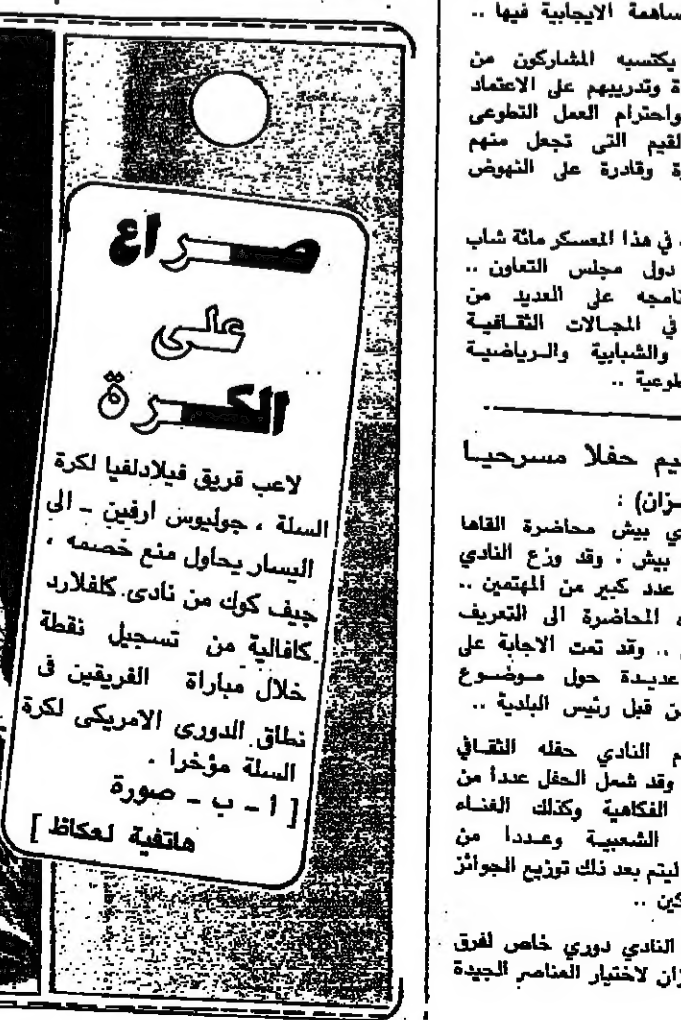 ساهمة الايجابية فيها ..
يكتسبه المشاركون من
وتدريبهم على الاعتماد
واحترام العمل التطوعى
القيم التى تجعل منهم
وقادرة على النهوض
في هذا المعسكر مائة شاب
دول مجلس التعاون ..
على العديد من
في المجالات الثقافية
والشبابية والرياضية
طوعية ..
يم حفلا مسرحيا
زان) :
ي بيش محاضرة القاها
بيش . وقد وزع النادي
عدد كبير من المهتمين ..
المحاضرة الى التعريف
.. وقد تمت الاجابة على
عديدة حول موضوع
من قبل رئيس البلدية ..
م النادي حفله الثقافي
وقد شمل الحفل عددا من
الفكاهية وكذلك الغناء
الشعبية وعددا من
ليتم بعد ذلك توزيع الجوائز
كين ..
النادي دوري خاص لفرق
زان لاختيار العناصر الجيدة
صراع
على
الكرة
لاعب فريق فيلادلفيا لكرة
السلة ، جوليوس ارفين - الى
اليسار يحاول منع خصمه ،
جيف كوك من نادى كلفلارد
كافالية من تسجيل نقطة
خلال مباراة الفريقين فى
نطاق الدورى الامريكى لكرة
السلة مؤخرا .
[ أ - ب - صورة
هاتفية لعكاظ ]